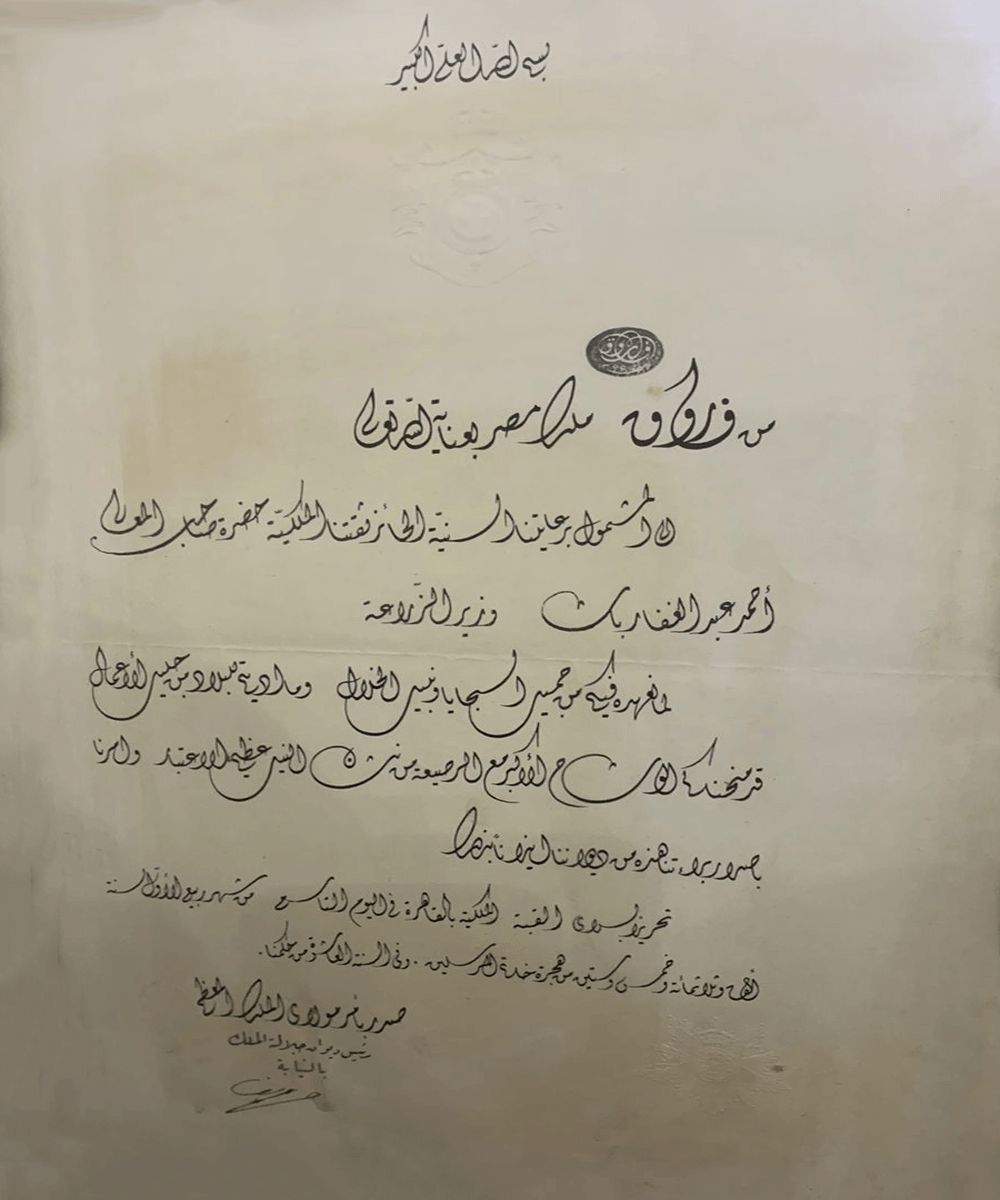 بسم الله العلى الكبير
فاروق
من فاروق ملك مصر بعناية الله تعالى
الى المشمول برعايتنا السنية الحائز ثقتنا الملكية حضرة صاحب المعالى
أحمد عبد الغفار باشا وزير الزراعة
لما نعهده فيكم من جميل السجايا ونبيل الخلال وما أديتم للبلاد من جليل الأعمال
قد منحناكم الوشاح الأكبر مع الرصيعة من نشان النيل عظيم الاعتبار وأمرنا
باصدار براءتنا هذه من ديواننا ايذانا بذلك
تحريرا بسراى القبة الملكية بالقاهرة فى اليوم التاسع من شهر ربيع الأول السنة
ألف وثلاثمائة وخمس وستين من هجرة خاتم المرسلين . وفى السنة العاشرة من حكمنا .
صدر بأمر مولاى الملك المعظم
رئيس ديوان جلالة الملك
بالنيابة